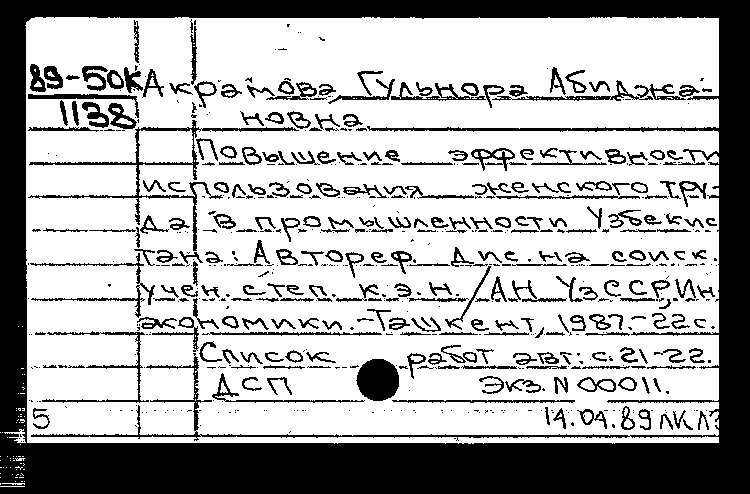 89-50К Акрамова, Гульнора Абиджа-
1138 новна
Повышение эффективности
использования женского тру-
да в промышленности Узбекис
тана: Автореф. дис. на соиск.
учен. степ. к.э.н. / АН УзССР, Ин-
экономики. - Ташкент, 1987. - 22 с.
Список работ авт: с. 21-22.
ДСП Экз. N 00011.
5 14.04.89